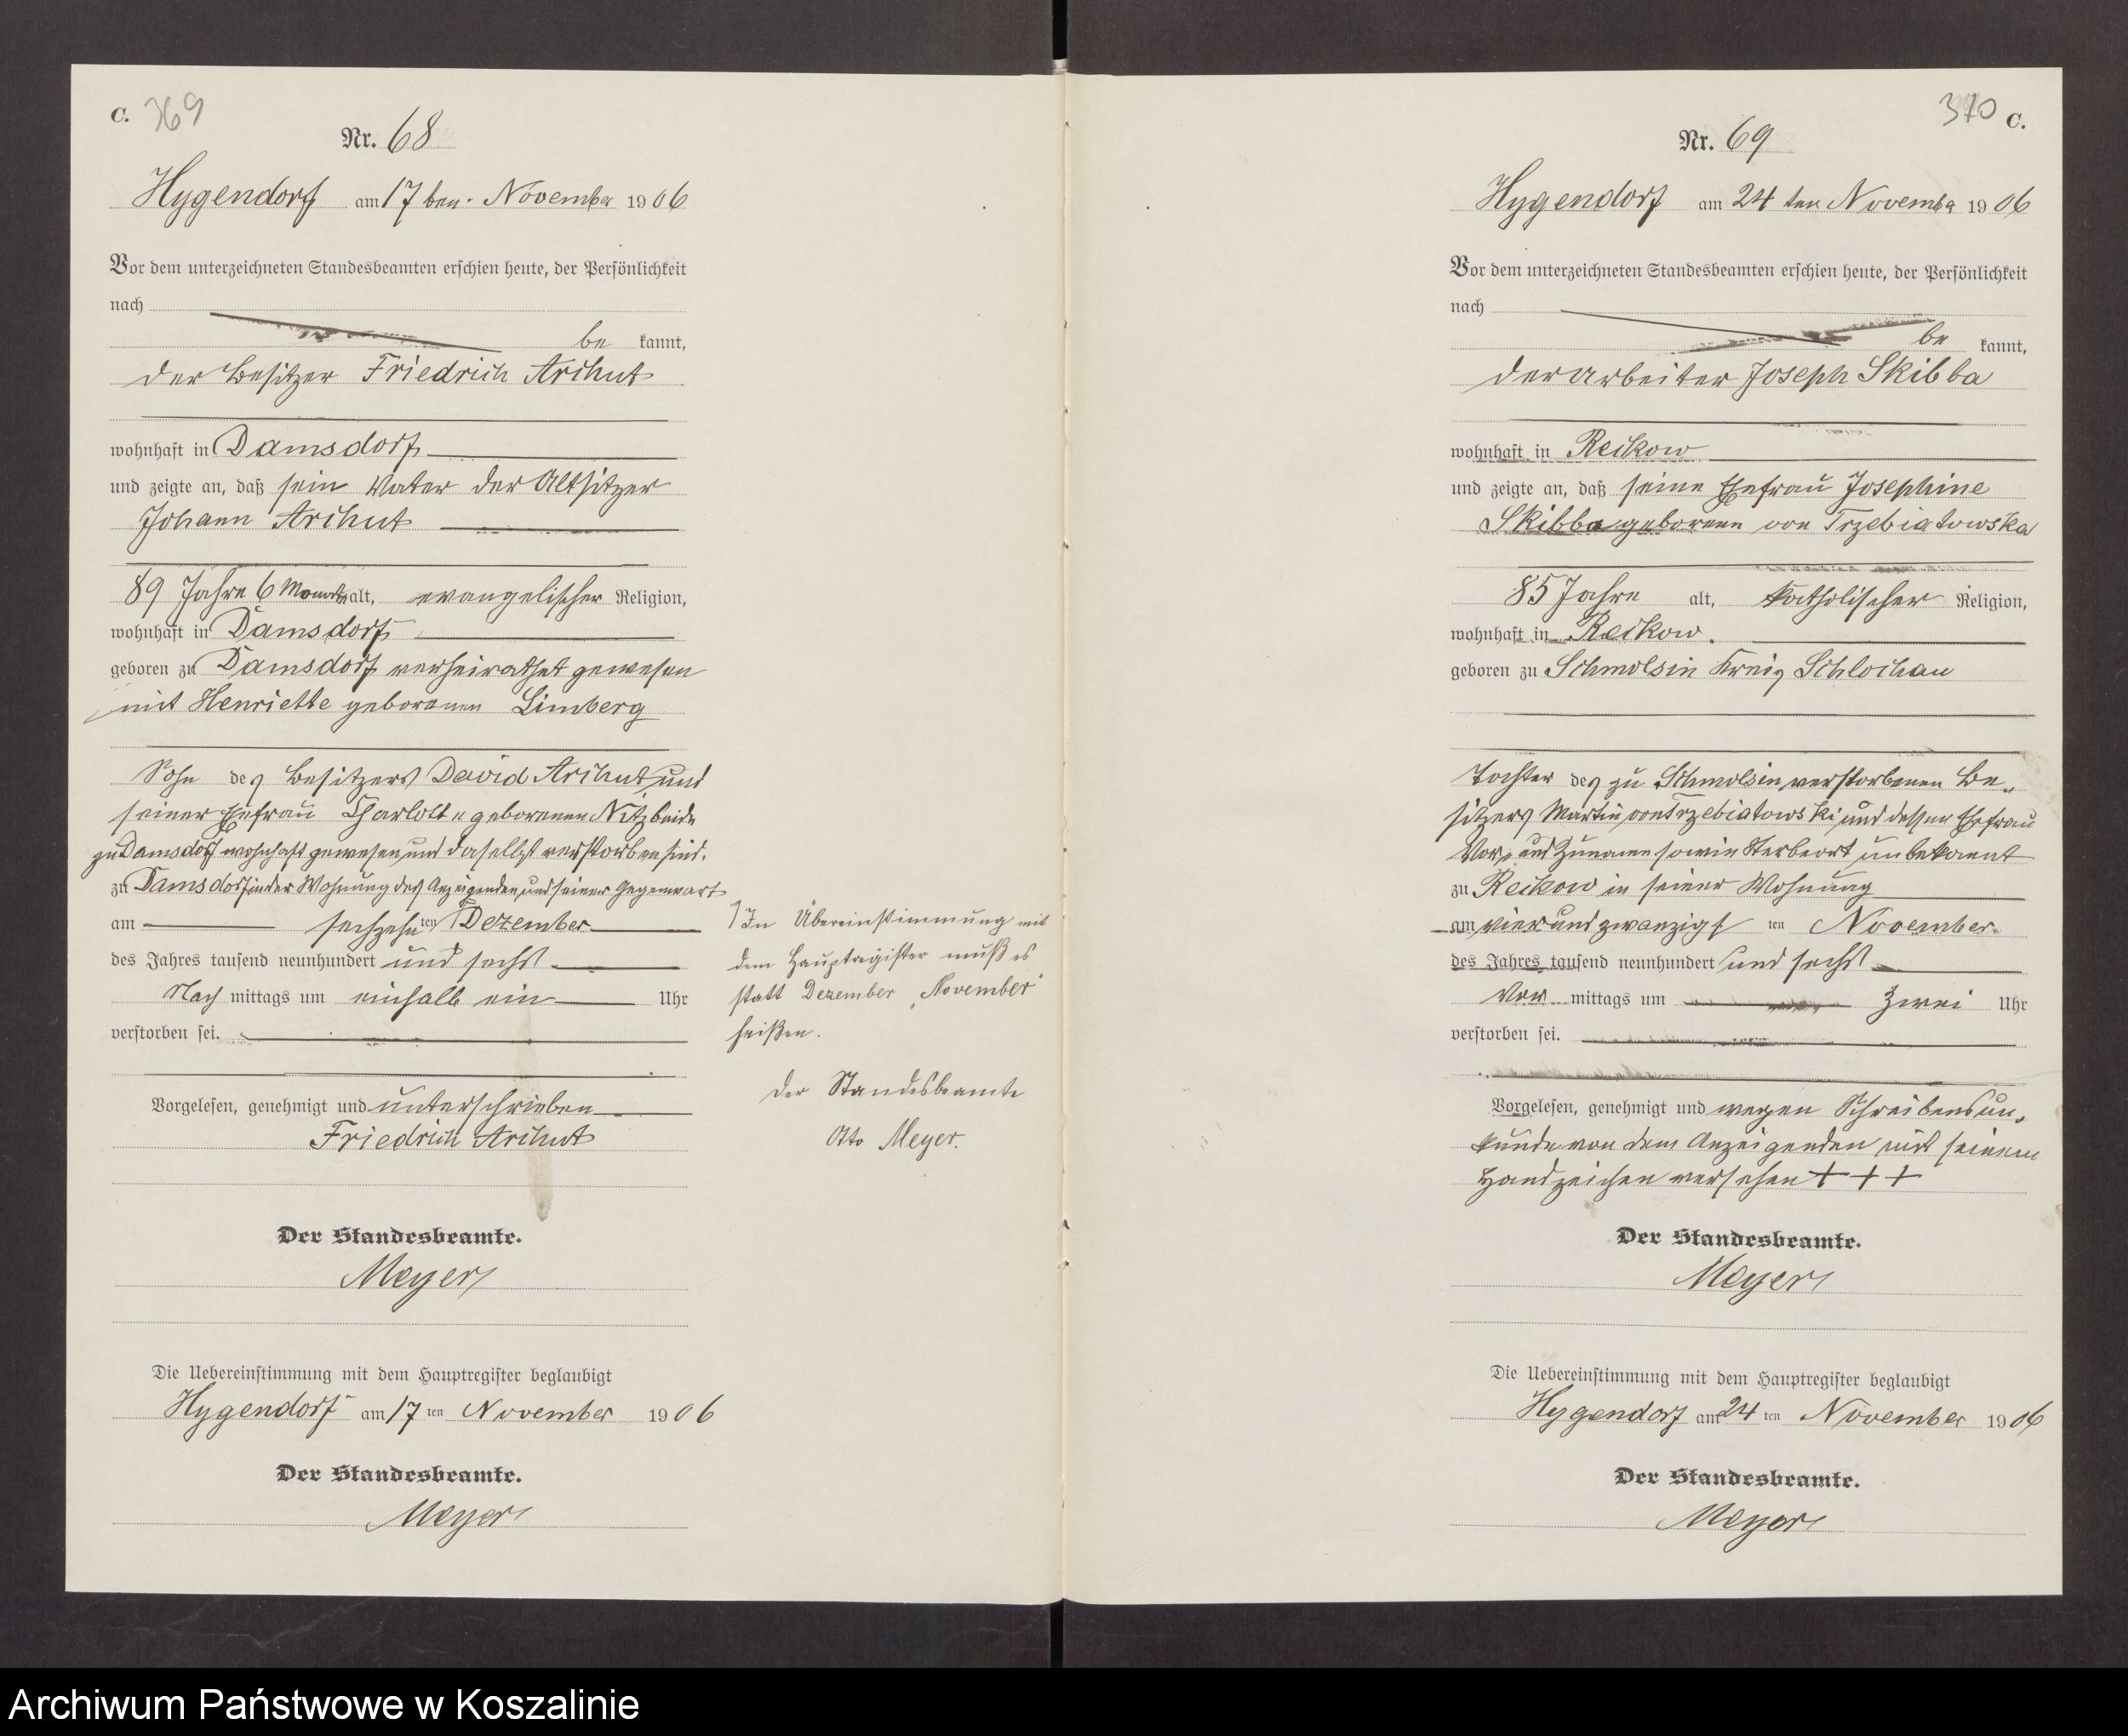 C. 369
Nr. 68
Hygendorf am 17 ten November 1906
Vor dem unterzeichneten Standesbeamten erschien heute, der Persönlichkeit
nach
be kannt,
der Besitzer Friedrich Archut
wohnhaft in Damsdorf
und zeigte an, daß sein Vater der Altsitzer
Johann Archut
89 Jahre 6 Monate alt, evangelischer Religion,
wohnhaft in Damsdorf
geboren zu Damsdorf verheirathet gewesen
mit Henriette geborenen Limberg
Sohn des Besitzers David Archut und
seiner Ehefrau Charlotte geborenen Nitz beide
zu Damsdorf wohnhaft gewesen und daselbst verstorben sind.
zu Damsdorf in der Wohnung des Anzeigenden und seiner Gegenwart
am sechzehn ten Dezember
des Jahres tausend neunhundert und sechs
Nach mittags um einhalb ein Uhr
verstorben sei.
Vorgelesen, genehmigt und unterschrieben
Friedrich Archut
Der Standesbeamte.
Meyer
Die Uebereinstimmung mit dem Hauptregister beglaubigt
Hygendorf am 17 ten November 1906
Der Standesbeamte.
Meyer
In Übereinstimmung mit
dem Hauptregister muß es
statt Dezember „November“
heißen.
Der Standesbeamte
Otto Meyer.
370 C.
Nr. 69
Hygendorf am 24 ten November 1906
Vor dem unterzeichneten Standesbeamten erschien heute, der Persönlichkeit
nach
be kannt,
der Arbeiter Joseph Skibba
wohnhaft in Reckow
und zeigte an, daß seine Ehefrau Josephine
Skibba geborenen von Trzebiatowska
85 Jahre alt, katholischer Religion,
wohnhaft in Reckow.
geboren zu Schmolsin Kreis Schlochau
Tochter des zu Schmolsin verstorbenen Be-
sitzers Martin von Trzebiatowski und dessen Ehefrau
Vor- und Zuname sowie Sterbeort unbekannt
zu Reckow in seiner Wohnung
am vier und zwanzigs ten November.
des Jahres tausend neunhundert und sechs
Vor mittags um zwei Uhr
verstorben sei.
Vorgelesen, genehmigt und wegen Schreibensun-
kunde von dem Anzeigenden mit seinem
Handzeichen versehen + + +
Der Standesbeamte.
Meyer
Die Uebereinstimmung mit dem Hauptregister beglaubigt
Hygendorf am 24 ten November 1906
Der Standesbeamte.
Meyer
Archiwum Państwowe w Koszalinie